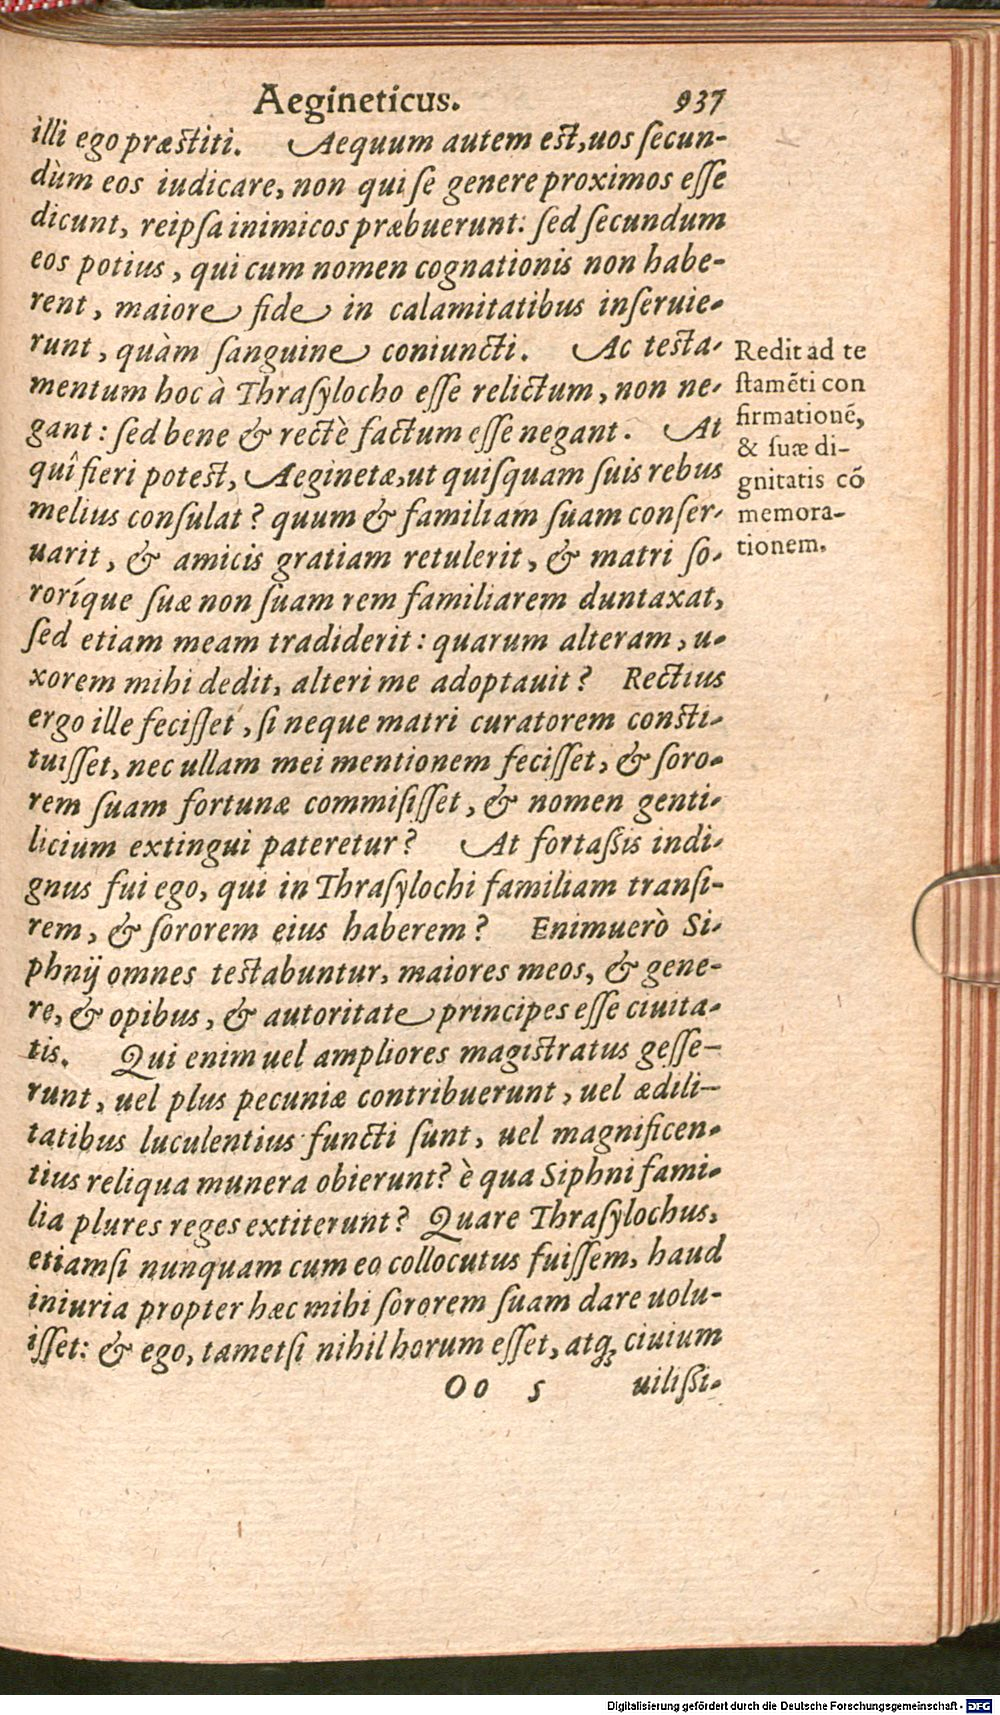 Aegineticus. 937
illi ego præstiti. Aequum autem est, uos secun-
dùm eos iudicare, non qui se genere proximos esse
dicunt, reipsa inimicos præbuerunt: sed secundum
eos potius, qui cum nomen cognationis non habe-
rent, maiore fide in calamitatibus inseruie-
runt, quàm sanguine coniuncti. Ac testa-
mentum hoc à Thrasylocho esse relictum, non ne-
gant: sed bene & rectè factum esse negant. At
quî fieri potest, Aeginetæ, ut quisquam suis rebus
melius consulat? quum & familiam suam conser-
uarit, & amicis gratiam retulerit, & matri so-
roríque suæ non suam rem familiarem duntaxat,
sed etiam meam tradiderit: quarum alteram, u-
xorem mihi dedit, alteri me adoptauit? Rectius
ergo ille fecisset, si neque matri curatorem consti-
tuisset, nec ullam mei mentionem fecisset, & soro-
rem suam fortunæ commisisset, & nomen genti-
licium extingui pateretur? At fortassis indi-
gnus fui ego, qui in Thrasylochi familiam transi-
rem, & sororem eius haberem? Enimuerò Si-
phnij omnes testabuntur, maiores meos, & gene-
re, & opibus, & autoritate principes esse ciuita-
tis. Qui enim uel ampliores magistratus gesse-
runt, uel plus pecuniæ contribuerunt, uel ædili-
tatibus luculentius functi sunt, uel magnificen-
tius reliqua munera obierunt? è qua Siphni fami-
lia plures reges extiterunt? Quare Thrasylochus,
etiamsi nunquam cum eo collocutus fuissem, haud
iniuria propter hæc mihi sororem suam dare uolu-
isset: & ego, tametsi nihil horum esset, atq; ciuium
Oo 5 uilissi-
Redit ad te
stamēti con
firmationē,
& suæ di-
gnitatis cō
memora-
tionem.
Digitalisierung gefördert durch die Deutsche Forschungsgemeinschaft - DFG